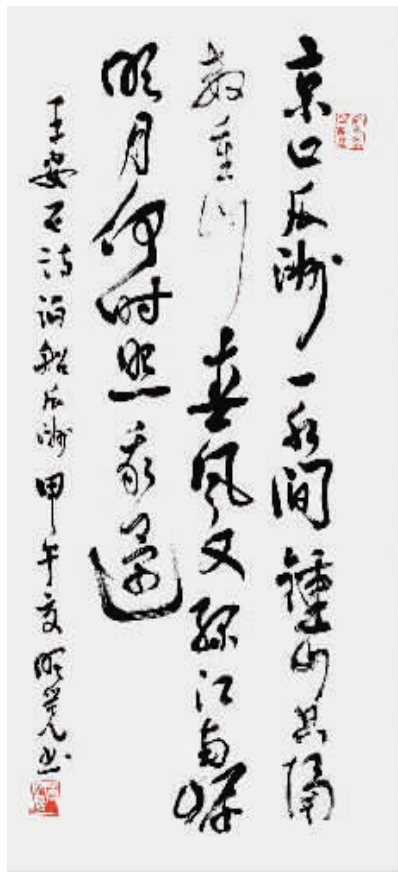 京口瓜洲一水间鍾山只隔
数重山春风又绿江南岸
明月何时照我還
王安石诗泊船瓜洲甲午夏明亮书